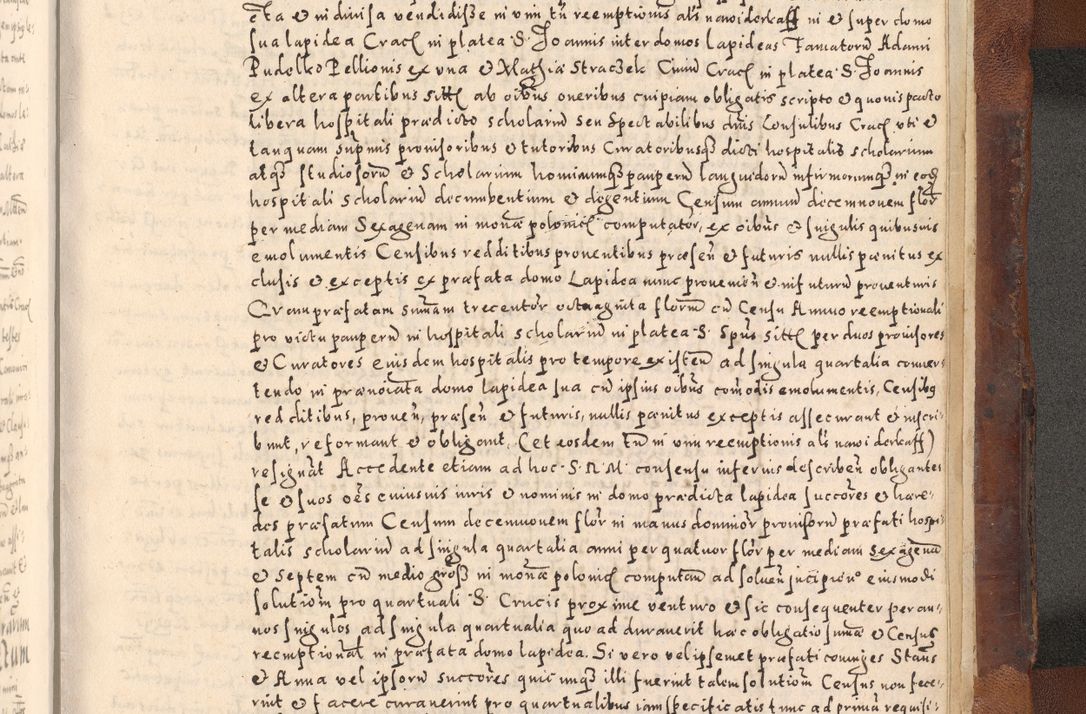 cta et in divisa vendidisse in vim tn reemptionis als nawiderkaff in et super domo
sua lapidea Crac in platea S. Joannis inter domos lapideas Famatorū Adami
Pudolko Pellionis ex una et Mathiæ Straczek Civiū Crac in platea S. Joannis
ex altera partibus sitt ab oibus oneribus cuipiam obligatis scripto et quovis pacto
libera hospitali prædicto scholariū seu Spectabilibus dnis Consulibus Crac uti et
tanquam supmis provisoribus et tutoribus Curatoribusq dicti hospitalis scholarium
atq studiosorū et Scholarium hominumq pauperū languidorū infirmorumq in eod
hospitali scholariū decumbentium et degentium Censum annuū decemnovem flor
per mediam Sexagenam in moneæ polonic computator, ex oibus et singulis quibusvis
emolumentis Censibus redditibus proventibus præsen et futuris nullis pænitus ex
clusis et exceptis ex præfata domo Lapidea nunc provenien et in futurū proventuris
Qvam præfatam sumam trecentor octuaginta florenū cū Censu Annuo reemptionali
pro victu pauperū in hospitali scholariū in platea S. Spus sitt per duos provisores
et Curatores eiusdem hospitalis pro tempore existen ad singula quartalia conver
tendo in prænoiata domo lapidea sua cū ipsius oibus comodis emolumentis, Censibq
redditibus, proven, præsen et futuris, nullis pænitus exceptis assecurant et inscri
bunt, reformant et obligant, (et eosdem tn in vim reemptionis als nawi derkaff)
resignāt Accedente etiam ad hoc S. R. M. consensu inferius describen obligantes
se et suos oes cuiusvis iuris et nominis in domo prædicta lapidea succores et hære-
des præfatum Censum decemnovem flor in manus dominor provisorū præfati hospi-
talis scholariū ad singula quartalia anni per quatuor flor per mediam sexagenā
et Septem cū medio gross in moneæ polonic computan ad solven incipien eiusmodi
solutiom pro quartuali S. Crucis proxime venturo et sic consequenter per an-
nos singulos ad singula quartualia quo ad duraverit hæc obligatio sumæ et Census
reemptional in præfata domo lapidea. Si vero vel ipsemet præfati coniuges Stans
et Anna vel ipsorū succores quicunq illi fuerint talem solutiom Census non fece-
rint et facere curaverint pro quartualibus iam specificatis tunc ad primā requisi-